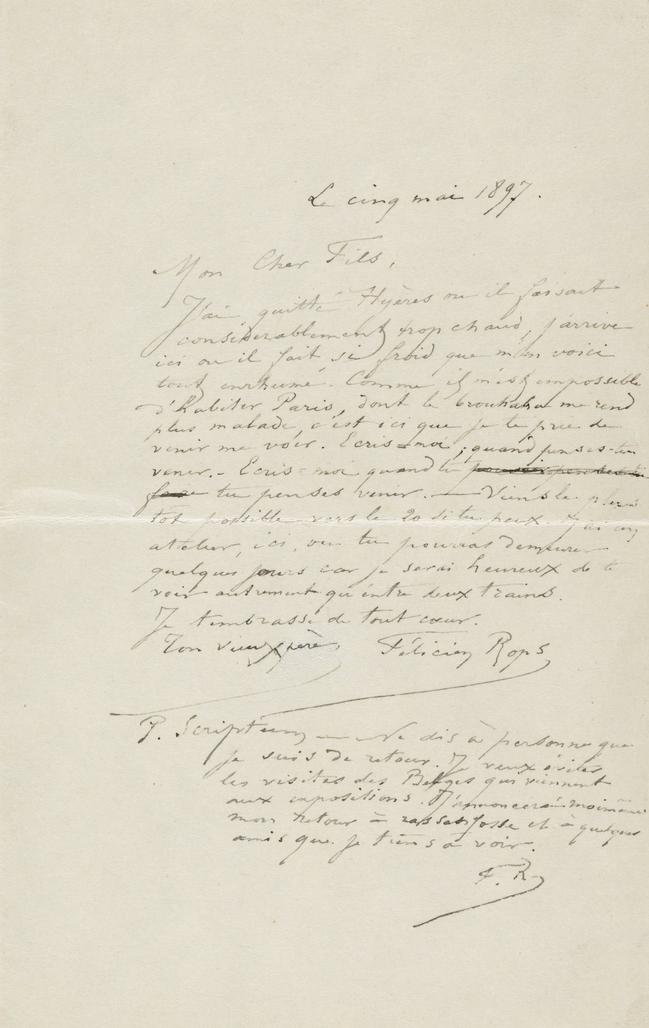 Le cinq mai 1897.
Mon Cher Fils,
J'ai quitté Hyères ou il faisait
considerablement trop chaud, j'arrive
ici ou il fait si froid que m'en voici
tout enrhumé. Comme il m'est impossible
d'habiter Paris, dont le brouhaha me rend
plus malade, c'est ici que je te prie de
venir me voir. Ecris-moi, quand penses-tu
venir. - Ecris-moi quand tu
tu penses venir. — Viens le plus
tot possible vers le 20 si tu peux. J'ai un
atelier, ici, ou tu pourras demeurer
quelques jours car je serai heureux de te
voir autrement qu'entre deux trains.
Je t'embrasse de tout cœur.
Ton vieux père, Félicien Rops
P. Scriptum — Ne dis à personne que
je suis de retour. Je veux éviter
les visites des Belges qui viennent
aux expositions. J'annoncerai moi même
mon retour à rassenfosse et à quelques
amis que je tiens à voir.
F. R.